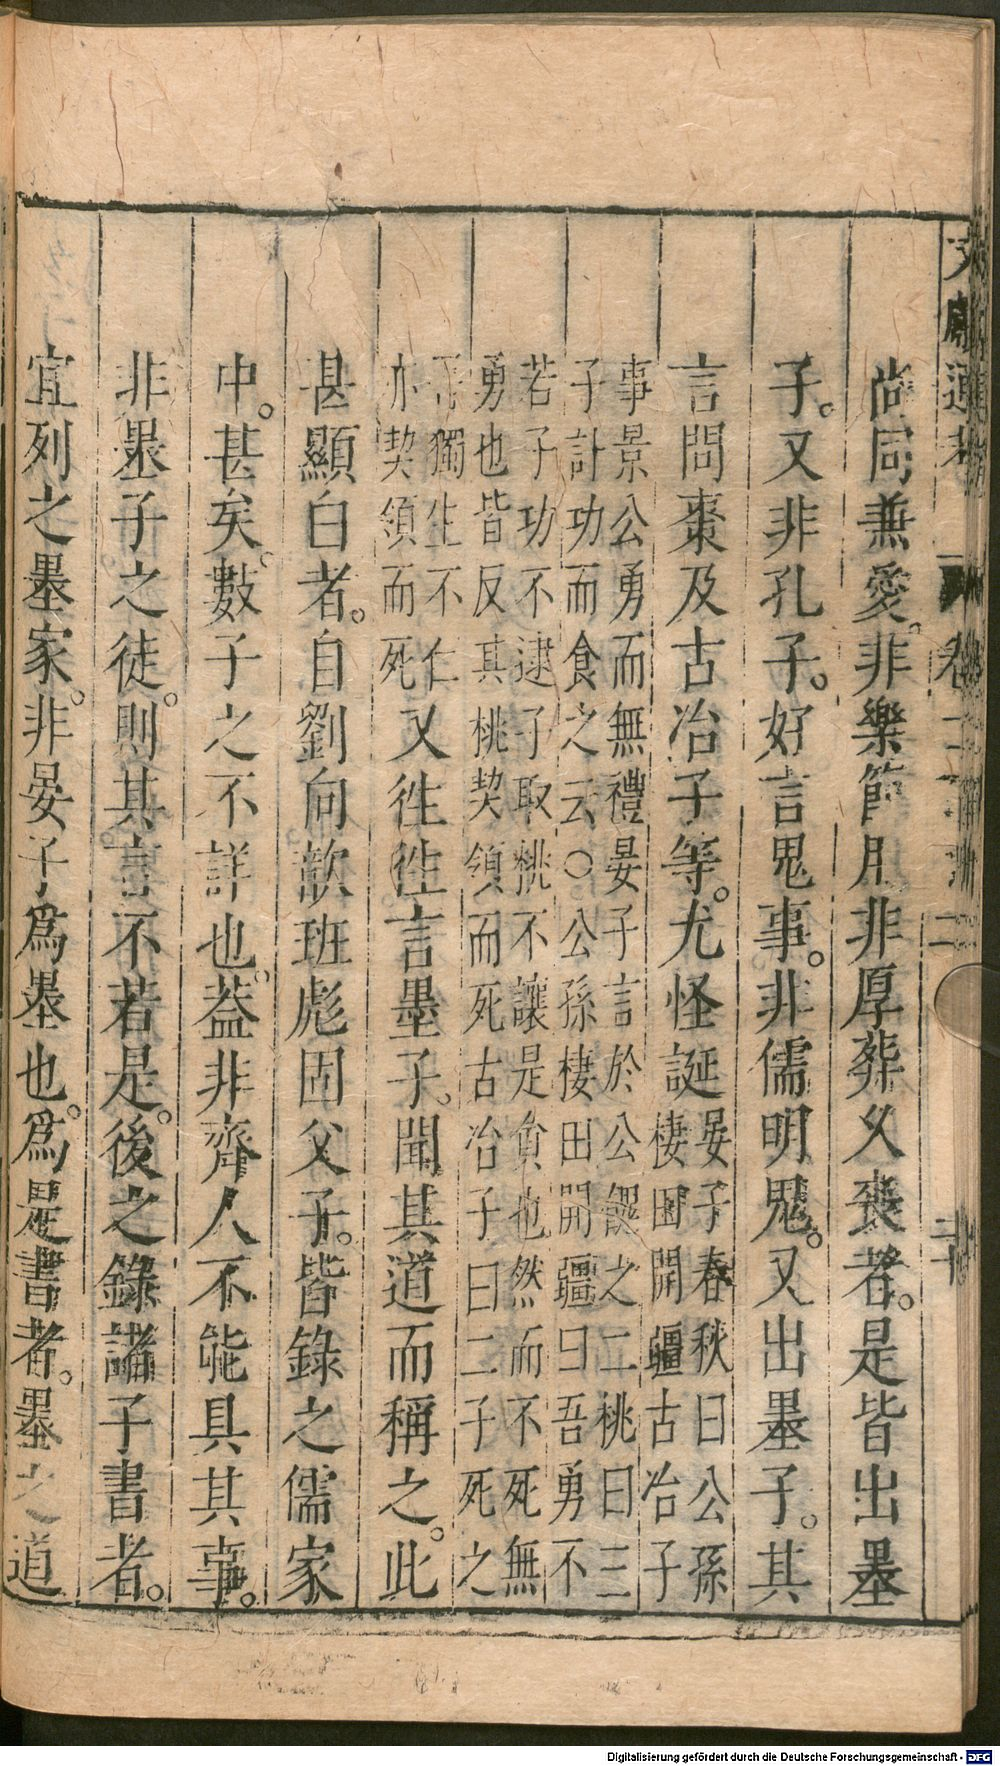 文獻通考 卷二百 二十
尚同兼愛。非樂節用非厚葬乂喪者。是皆出墨
子。又非孔子。好言鬼事。非儒明鬼。又出墨子。其
言問棗及古冶子等。尤怪誕晏子春秋曰公孫
棲田開疆古冶子
事景公勇而無禮晏子言於公餽之二桃曰三
子計功而食之云〇公孫棲田開疆曰吾勇不
若子功不逮子取桃不讓是貪也然而不死無
勇也皆反其桃契領而死古冶子曰二子死之
獨生不仁
亦契領而死又徃徃言墨子。聞其道而稱之。此
甚顯白者。自劉向歆班彪固父子。皆錄之儒家
中。甚矣。數子之不詳也。葢非齊人不能具其事。
非墨子之徒。則其言不若是。後之錄諸子書者。
宜列之墨家。非晏子爲墨也。爲是書者。墨之道
Digitalisierung gefördert durch die Deutsche Forschungsgemeinschaft - DFG